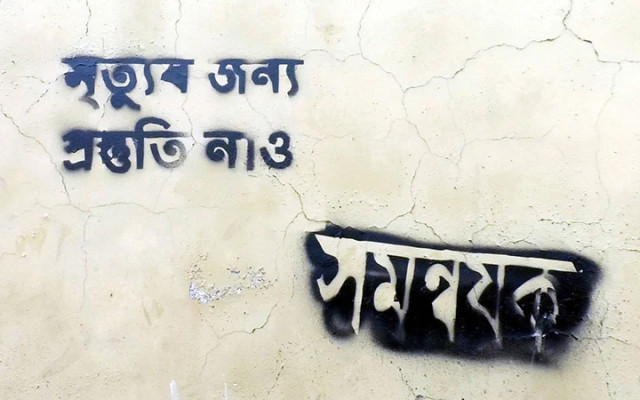 মৃত্যুর জন্য
প্রস্তুতি নাও
সমন্বয়ক